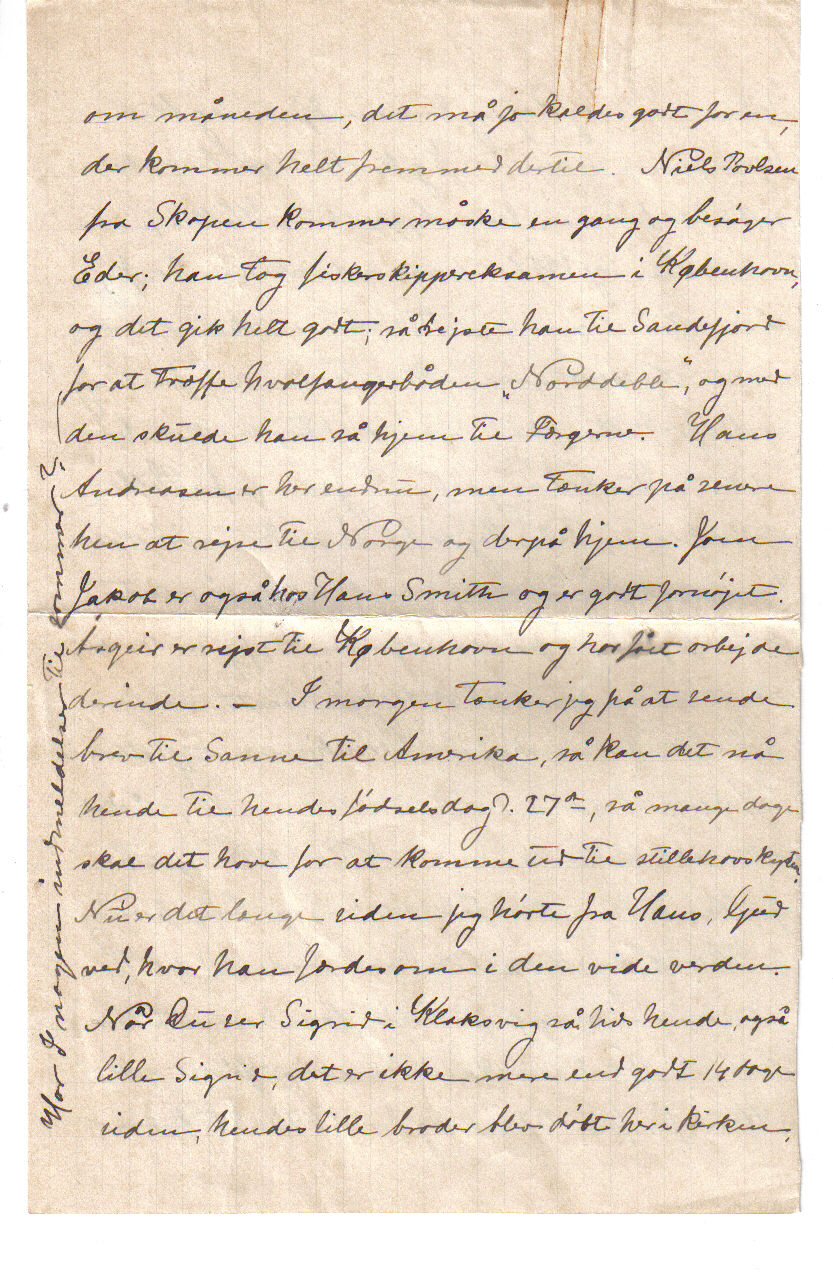 om måneden, det må jo kaldes godt for en,
der kommer helt fremmed dertil. Niels Povlsen
fra Skopen kommer måske en gang og besøger
Eder; han tog fiskerskippereksamen i København,
og det gik helt godt; så rejste han til Sandefjord
for at træffe hvalfangerbåden "Norddeble", og med
den skulde han så hjem til Færøerne. Hans
Andreasen er her endnu, men tænker på senere
hen at rejse til Norge og derpå hjem. Joen
Jakob er også hos Hans Smith og er godt fornøjet.
Asgeir er rejst til København og har fået arbejde
derinde. — I morgen tænker jeg på at sende
brev til Sanne til Amerika, så kan det nå
hende til hendes fødselsdag d. 27de, så mange dage
skal det have for at komme ud til stillehavskysten.
Nu er det længe siden jeg hørte fra Hans, Gud
ved, hvor han færdes om i den vide verden.
Når Du ser Sigrid i Klaksvig så hils hende, også
lille Sigrid, det er ikke mere end godt 14 dage
siden, hendes lille broder blev døbt her i kirken.
Har I nogen indmeldelser til sommer? —